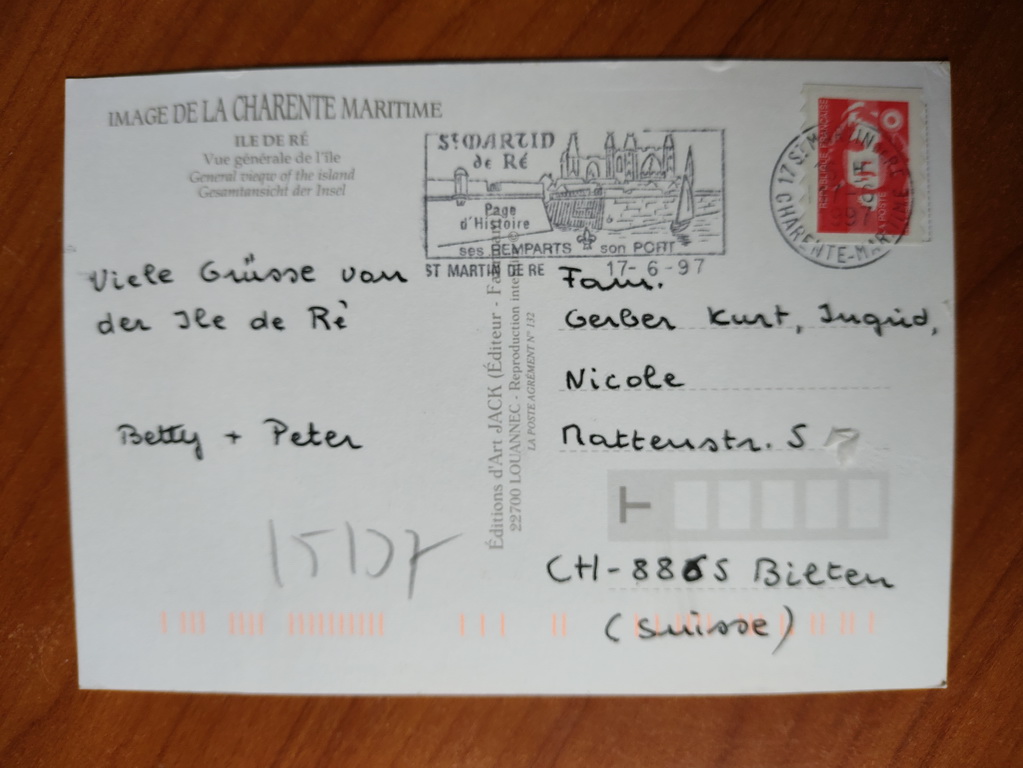 IMAGE DE LA CHARENTE MARITIME
ILE DE RÉ
Vue générale de l'île
General vieqw of the island
Gesamtansicht der Insel
St MARTIN
de RÉ
Page
d'Histoire
ses REMPARTS son PORT
ST MARTIN DE RE 17-6-97
REPUBLIQUE FRANÇAISE
17 St M
CHARENTE-MARITIME
Viele Grüsse von
der Ile de Rè
Betty + Peter
15137
Éditions d'Art JACK (Éditeur -
22700 LOUANNEC - Reproduction
LA POSTE AGRÉMENT N° 132
Fam.
Gerber Kurt, Ingrid,
Nicole
Mattenstr. 5
CH-8865 Bilten
(Suisse)